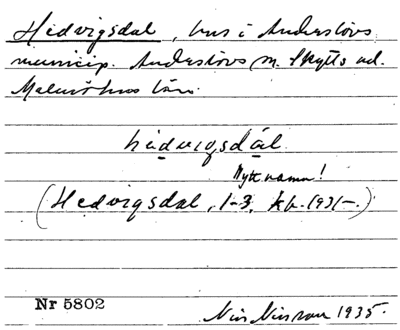 Hedvigsdal, hus i Anderslövs
municip. Anderslövs sn. Skytts hd.
Malmöhus län.
hèdvigsdàl
Nytt namn!
(Hedvigsdal, 1-3, kb. 1931-.)
Nr 5802
Nils Nilsson 1935.